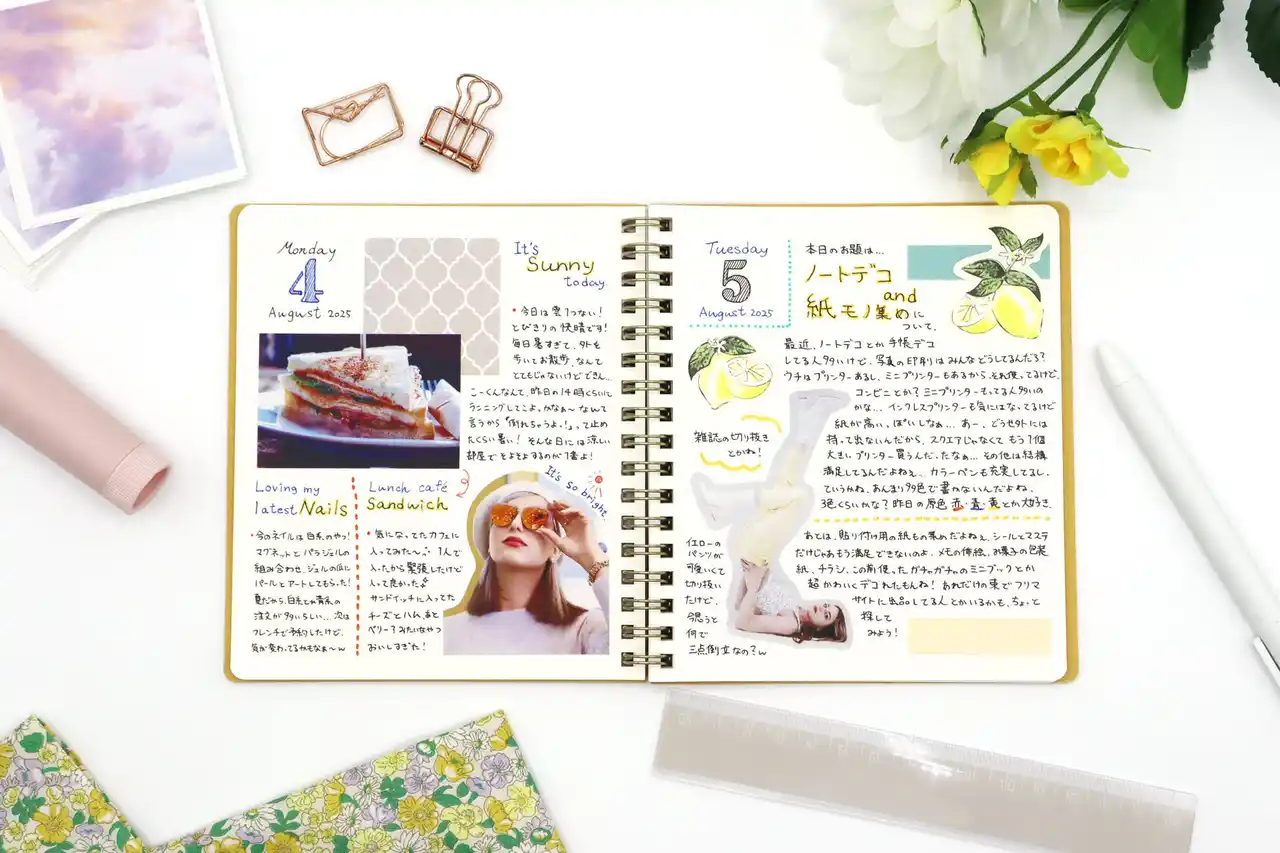 Monday
4
August 2025
It's
Sunny
today
・今日は雲1つない!
とびきりの快晴です!
毎日暑すぎて、外を
歩いてお散歩、なんて
とてもじゃないけどできん…
こーくんなんて、昨日の14時くらいに
ランニングしてこよっかなぁ〜なんて
言うから「倒れちゃうよ!」って止め
たくらい暑い! そんな日には涼しい
部屋でそよそよするのが1番よ!
Loving my
latest Nails
・今のネイルは白系のやつ!
マグネットとパラジェルの
組み合わせ、ジェルの爪に
パールとアートしてもらった!
夏だから、白系とか青系の
注文が多いらしい…次は
フレンチで予約したけど、
気が変わってるかもなぁ〜w
Lunch café
Sandwich
・気になってたカフェに
入ってみた〜 1人で
入ったから緊張したけど
入って良かった
サンドイッチに入ってた
チーズとハム、あと
ベリー?みたいなやつ
おいしすぎた!
It's so bright.
Tuesday
5
August 2025
本日のお題は…
ノートデコ
and
紙モノ集めに
ついて.
最近、ノートデコとか手帳デコ
してる人多いけど、写真の印刷はみんなどうしてるんだろ?
ウチはプリンターあるし、ミニプリンターもあるから、それ使ってるけど、
コンビニとか? ミニプリンターもってる人多いの
かな… インクレスプリンターも気にはなってるけど
紙が高い、っぽいしなぁ… あー、どうせ外には
持って出ないんだから、スクエアじゃなくてもう1個
大きいプリンター買うんだったなぁ… その他は結構
満足してるんだよねぇ、カラーペンも充実してるし、
ていうかね、あんまり多色で書かないんだよね。
3色くらいかな? 昨日の原色 赤・青・黄とか大好き.
雑誌の切り抜き
とかね!
イエローの
パンツが
可愛いくて
切り抜い
たけど、
今思うと
何で
三点倒立なの?w
あとは、貼り付け用の紙もの集めだよねぇ、シールとマステ
だけじゃあもう満足できないのよ、メモの傳絵、お菓子の包装
紙、チラシ、この前使ったガチャガチャのミニブックとか
超かわいくデコれたもんね! あれだけの束でフリマ
サイトに出品してる人とかいるかも、ちょっと
探して
みよう!